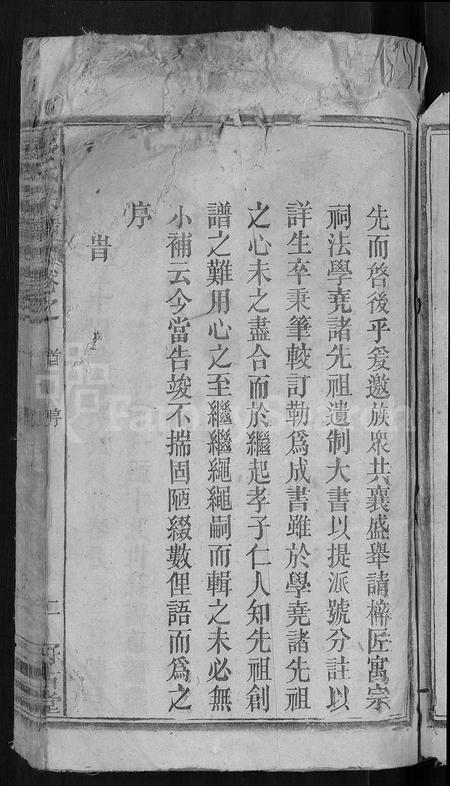 先而啓後乎爰邀族眾共襄盛舉請梓匠寓宗
祠法學堯諸先祖遺制大書以提派號分註以
詳生卒秉筆較訂勒爲成書雖於學堯諸先祖
之心未之盡合而於繼起孝子仁人知先祖創
譜之難用心之至繼繼繩繩嗣而輯之未必無
小補云今當告竣不揣固陋綴數俚語而爲之
序
旹
卷之一 首序 二